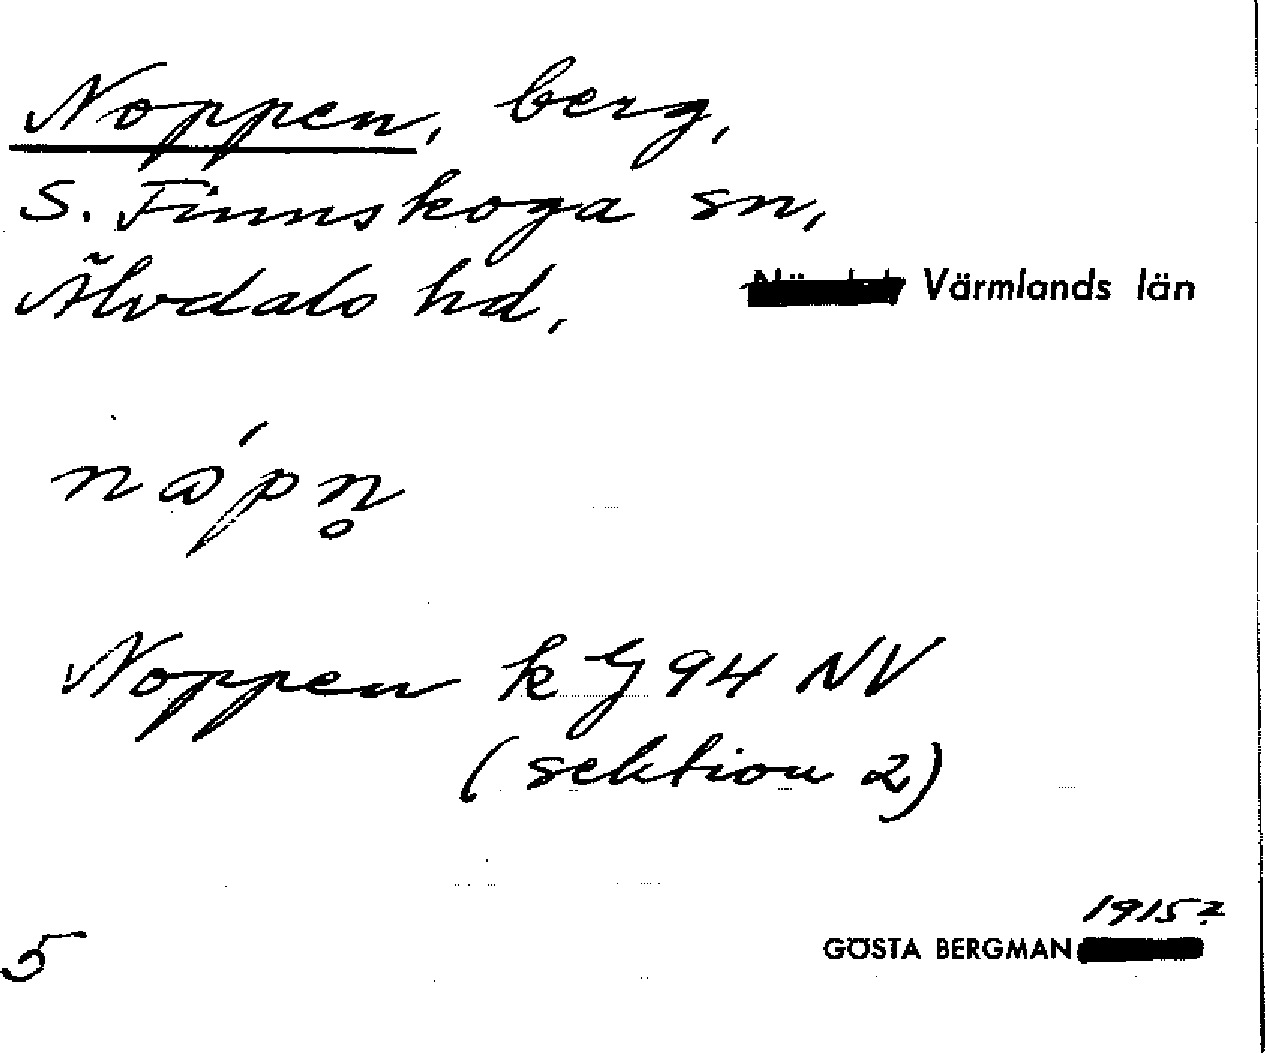 Noppen, berg,
S. Finnskoga sn,
Älvdals hd, Värmlands län
nǻpn̥
Noppen k G 94 NV
(sektion 2)
1915?
5 GÖSTA BERGMAN